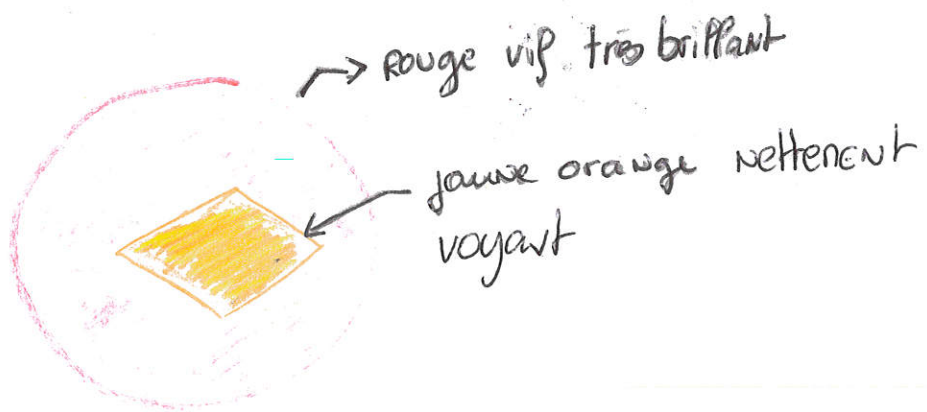 Rouge vif très brillant
jaune orange nettement
voyant